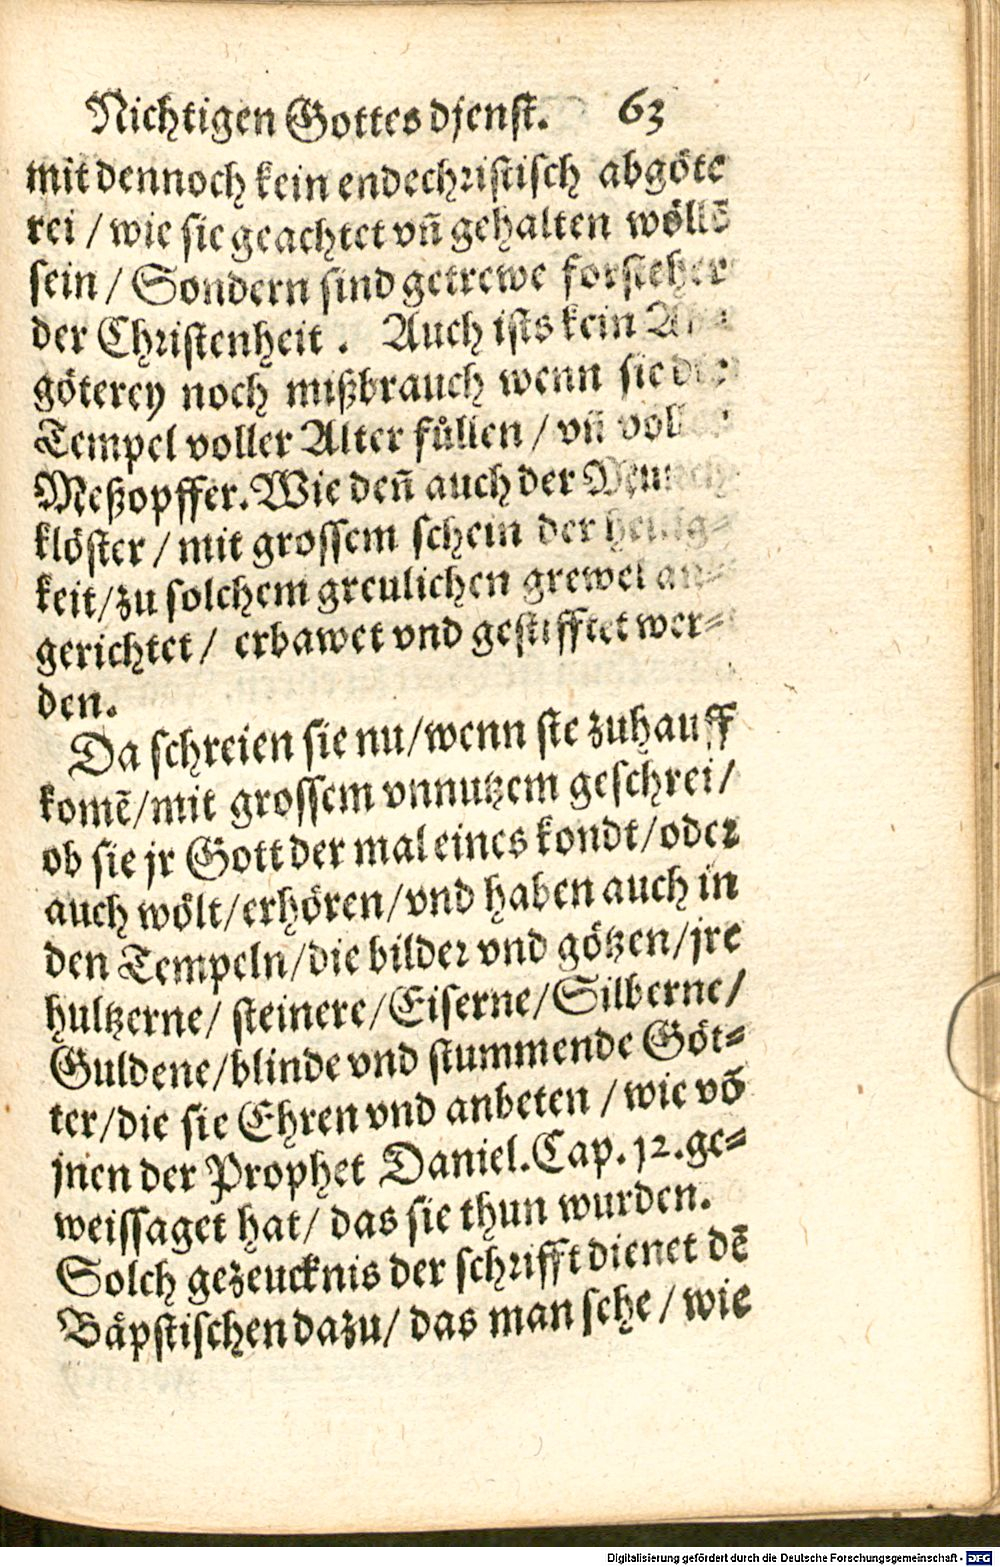 Nichtigen Gottes djenst. 63
mit dennoch kein endechristisch abgöte
rei / wie sie geachtet vñ gehalten wöllē
sein / Sondern sind getrewe forsteher
der Christenheit . Auch ists kein Ab⸗
göterey noch mißbrauch wenn sie die
Tempel voller Alter füllen / vñ voller
Meßopffer. Wie deñ auch der Münch
klöster / mit grossem schein der heilig⸗
keit/zu solchem greulichen grewel an⸗
gerichtet / erbawet vnd gestifftet wer⸗
den.
Da schreien sie nu/wenn ste zuhauff
komē/mit grossem vnnutzem geschrei/
ob sie jr Gott der mal eines kondt/oder
auch wölt/erhören/vnd haben auch in
den Tempeln/die bilder vnd götzen/jre
hultzerne/ steinere/Eiserne/Silberne/
Guldene/blinde vnd stummende Göt⸗
ter/die sie Ehren vnd anbeten / wie vō
jnen der Prophet Daniel. Cap. 12. ge⸗
weissaget hat/ das sie thun wurden.
Solch gezeucknis der schrifft dienet dē
Bäpstischen dazu/ das man sehe / wie
Digitalisierung gefördert durch die Deutsche Forschungsgemeinschaft - DFG